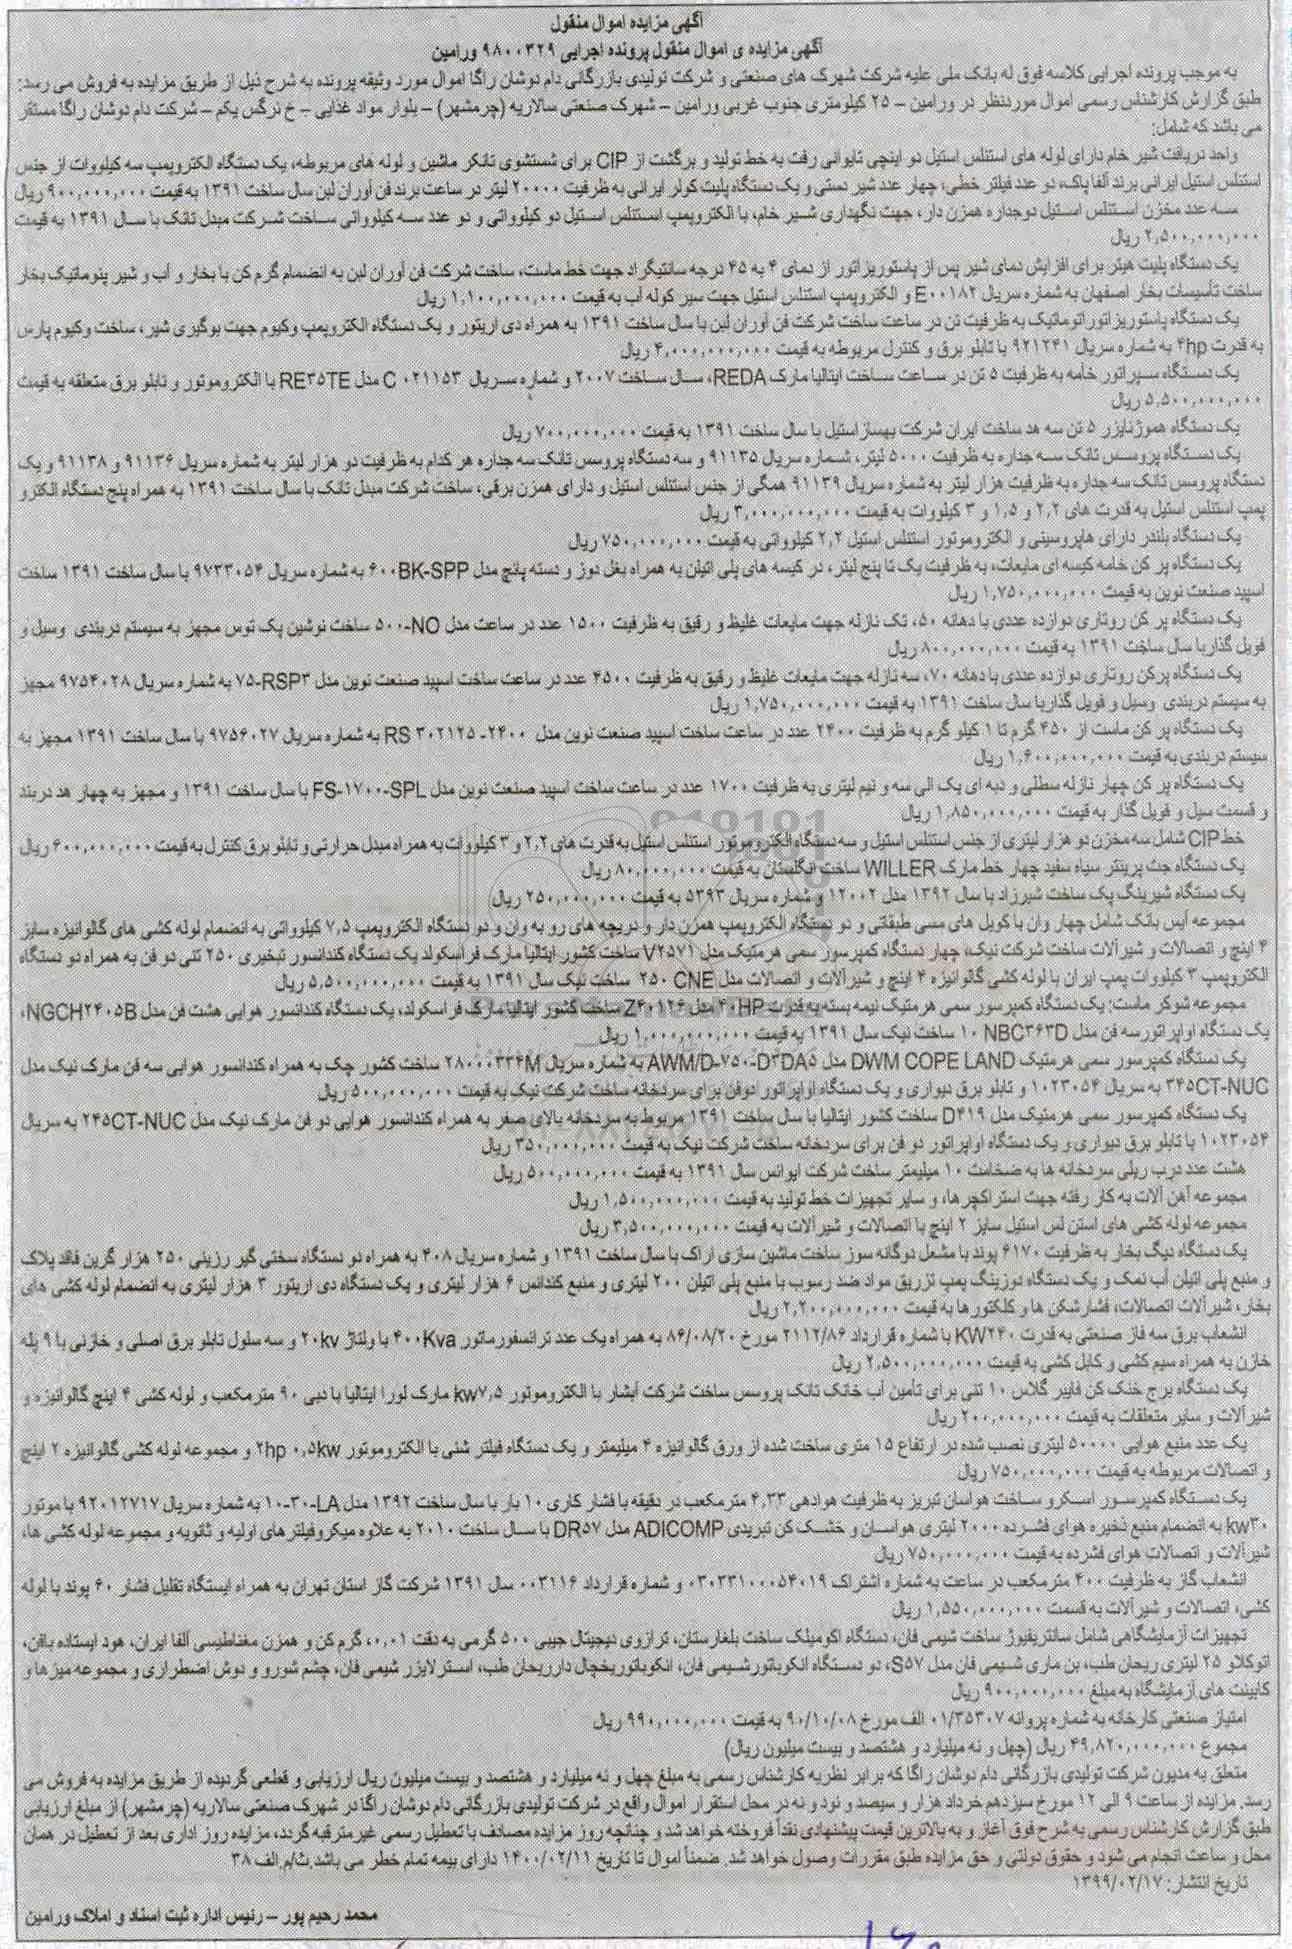 آگهی مزایده اموال منقول
آگهی مزایده ی اموال منقول پرونده اجرایی ۹۸۰۰۳۲۹ ورامین
به موجب پرونده اجرایی کلاسه فوق له بانک ملی علیه شرکت شهرک های صنعتی و شرکت تولیدی بازرگانی دام دوشان راگا اموال مورد وثیقه پرونده به شرح ذیل از طریق مزایده به فروش می رسد:
طبق گزارش کارشناس رسمی اموال موردنظر در ورامین – ۲۵ کیلومتری جنوب غربی ورامین – شهرک صنعتی سالاریه (چرمشهر) – بلوار مواد غذایی – خ نرگس یکم – شرکت دام دوشان راگا مستقر
می باشد که شامل:
واحد دریافت شیر خام دارای لوله های استنلس استیل دو اینچی تایوانی رفت به خط تولید و برگشت از CIP برای شستشوی تانکر ماشین و لوله های مربوطه، یک دستگاه الکتروپمپ سه کیلووات از جنس
استنلس استیل ایرانی برند آلفا پاک، دو عدد فیلتر خطی، چهار عدد شیر دستی و یک دستگاه پلیت کولر ایرانی به ظرفیت ۲۰۰۰۰ لیتر در ساعت برند فن آوران لبن سال ساخت ۱۳۹۱ به قیمت ۹۰۰,۰۰۰,۰۰۰ ریال
سه عدد مخزن استنلس استیل دوجداره همزن دار، جهت نگهداری شیر خام، با الکتروپمپ استنلس استیل دو کیلوواتی و دو عدد سه کیلوواتی ساخت شرکت مبدل تانک با سال ۱۳۹۱ به قیمت
۲,۵۰۰,۰۰۰,۰۰۰ ریال
یک دستگاه پلیت هیتر برای افزایش دمای شیر پس از پاستوریزاتور از دمای ۴ به ۴۵ درجه سانتیگراد جهت خط ماست، ساخت شرکت فن آوران لبن به انضمام گرم کن با بخار و آب و شیر پنوماتیک بخار
ساخت تأسیسات بخار اصفهان به شماره سریال E۰۰۱۸۲ و الکتروپمپ استنلس استیل جهت سیر کوله آب به قیمت ۱,۱۰۰,۰۰۰,۰۰۰ ریال
یک دستگاه پاستوریزاتور اتوماتیک به ظرفیت تن در ساعت ساخت شرکت فن آوران لبن با سال ساخت ۱۳۹۱ به همراه دی اریتور و یک دستگاه الکتروپمپ وکیوم جهت بوگیری شیر، ساخت وکیوم پارس
به قدرت ۴hp به شماره سریال ۹۲۱۲۴۱ با تابلو برق و کنترل مربوطه به قیمت ۴,۰۰۰,۰۰۰,۰۰۰ ریال
یک دستگاه سپراتور خامه به ظرفیت ۵ تن در ساعت ساخت ایتالیا مارک REDA، سال ساخت ۲۰۰۷ و شماره سریال C ۰۲۱۱۵۳ مدل RE۳۵TE با الکتروموتور و تابلو برق متعلقه به قیمت
۵,۵۰۰,۰۰۰,۰۰۰ ریال
یک دستگاه هموژنایزر ۵ تن سه هد ساخت ایران شرکت بهسازاستیل با سال ساخت ۱۳۹۱ به قیمت ۷۰۰,۰۰۰,۰۰۰ ریال
یک دستگاه پروسس تانک سه جداره به ظرفیت ۵۰۰۰ لیتر، شماره سریال ۹۱۱۳۵ و سه دستگاه پروسس تانک سه جداره هر کدام به ظرفیت دو هزار لیتر به شماره سریال ۹۱۱۳۶ و ۹۱۱۳۸ و یک
دستگاه پروسس تانک سه جداره به ظرفیت هزار لیتر به شماره سریال ۹۱۱۳۹ همگی از جنس استنلس استیل و دارای همزن برقی، ساخت شرکت مبدل تانک با سال ساخت ۱۳۹۱ به همراه پنج دستگاه الکترو
پمپ استنلس استیل به قدرت های ۲,۲ و ۱,۵ و ۳ کیلووات به قیمت ۳,۰۰۰,۰۰۰,۰۰۰ ریال
یک دستگاه بلندر دارای هاپروسینی و الکتروموتور استنلس استیل ۲,۲ کیلوواتی به قیمت ۷۵۰,۰۰۰,۰۰۰ ریال
یک دستگاه پر کن خامه کیسه ای مایعات، به ظرفیت یک تا پنج لیتر، در کیسه های پلی اتیلن به همراه بغل دوز و دسته پانچ مدل ۶۰۰BK-SPP به شماره سریال ۹۷۳۳۰۵۴ با سال ساخت ۱۳۹۱ ساخت
اسپید صنعت نوین به قیمت ۱,۷۵۰,۰۰۰,۰۰۰ ریال
یک دستگاه پر کن روتاری دوازده عددی با دهانه ۵۰، تک نازله جهت مایعات غلیظ و رقیق به ظرفیت ۱۵۰۰ عدد در ساعت مدل ۵۰۰-NO ساخت نوشین پک توس مجهز به سیستم دربندی وسیل و
فویل گذاربا سال ساخت ۱۳۹۱ به قیمت ۸۰۰,۰۰۰,۰۰۰ ریال
یک دستگاه پرکن روتاری دوازده عددی با دهانه ۷۰، سه نازله جهت مایعات غلیظ و رقیق به ظرفیت ۴۵۰۰ عدد در ساعت ساخت اسپید صنعت نوین مدل ۷۵-RSP۳ به شماره سریال ۹۷۵۴۰۲۸ مجهز
به سیستم دربندی وسیل و فویل گذاربا سال ساخت ۱۳۹۱ به قیمت ۱,۷۵۰,۰۰۰,۰۰۰ ریال
یک دستگاه پر کن ماست از ۴۵۰ گرم تا ۱ کیلو گرم به ظرفیت ۲۴۰۰ عدد در ساعت ساخت اسپید صنعت نوین مدل ۲۴۰۰- RS ۳۰۲۱۲۵ به شماره سریال ۹۷۵۶۰۲۷ با سال ساخت ۱۳۹۱ مجهز به
سیستم دربندی به قیمت ۱,۶۰۰,۰۰۰,۰۰۰ ریال
یک دستگاه پر کن چهار نازله سطلی و دبه ای یک الی سه و نیم لیتری به ظرفیت ۱۷۰۰ عدد در ساعت ساخت اسپید صنعت نوین مدل FS-۱۷۰۰-SPL با سال ساخت ۱۳۹۱ و مجهز به چهار هد دربند
و قسمت سیل و فویل گذار به قیمت ۱,۸۵۰,۰۰۰,۰۰۰ ریال
خط CIP شامل سه مخزن دو هزار لیتری از جنس استنلس استیل و سه دستگاه الکتروموتور استنلس استیل به قدرت های ۲,۲ و ۳ کیلووات به همراه مبدل حرارتی و تابلو برق کنترل به قیمت ۶۰۰,۰۰۰,۰۰۰ ریال
یک دستگاه جت پرینتر سیاه سفید چهار خط مارک WILLER ساخت انگلستان به قیمت ۸۰,۰۰۰,۰۰۰ ریال
یک دستگاه شیرینگ پک ساخت شیرزاد با سال ۱۳۹۲ مدل ۱۲۰۰۲ و شماره سریال ۵۳۹۳ به قیمت ۲۵۰,۰۰۰,۰۰۰ ریال
مجموعه آیس بانک شامل چهار وان با کویل های مسی طبقاتی و دو دستگاه الکتروپمپ همزن دار و دریچه های رو به وان و دو دستگاه الکتروپمپ ۷,۵ کیلوواتی به انضمام لوله کشی های گالوانیزه سایز
۴ اینچ و اتصالات و شیرآلات ساخت شرکت نیک، چهار دستگاه کمپرسور سمی هرمتیک مدل V۲۵۷۱ ساخت کشور ایتالیا مارک فراسکولد یک دستگاه کندانسور تبخیری ۲۵۰ تنی دو فن به همراه دو دستگاه
الکتروپمپ ۳ کیلووات پمپ ایران با لوله کشی گالوانیزه ۴ اینچ و شیرآلات و اتصالات مدل CNE ۲۵۰ ساخت نیک سال ۱۳۹۱ به قیمت ۵,۵۰۰,۰۰۰,۰۰۰ ریال
مجموعه شوکر ماست: یک دستگاه کمپرسور سمی هرمتیک نیمه بسته به قدرت ۴۰HP مدل Z۴۰۱۲۶ ساخت کشور ایتالیا مارک فراسکولد، یک دستگاه کندانسور هوایی هشت فن مدل NGCH۲۴۰۵B،
یک دستگاه اواپراتورسه فن مدل NBC۳۶۳D ۱۰ ساخت نیک سال ۱۳۹۱ به قیمت ۱,۰۰۰,۰۰۰,۰۰۰ ریال
یک دستگاه کمپرسور سمی هرمتیک DWM COPE LAND مدل AWM/D-۷۵۰-D۳DA۵ به شماره سریال ۲۸۰۰۰۳۳۴M ساخت کشور چک به همراه کندانسور هوایی سه فن مارک نیک مدل
۳۴۵CT-NUC به سریال ۱۰۲۳۰۵۴ و تابلو برق دیواری و یک دستگاه اواپراتور دوفن برای سردخانه ساخت شرکت نیک به قیمت ۵۰۰,۰۰۰,۰۰۰ ریال
یک دستگاه کمپرسور سمی هرمتیک مدل D۴۱۹ ساخت کشور ایتالیا با سال ساخت ۱۳۹۱ مربوط به سردخانه بالای صفر به همراه کندانسور هوایی دو فن مارک نیک مدل ۲۴۵CT-NUC به سریال
۱۰۲۳۰۵۴ با تابلو برق دیواری و یک دستگاه اواپراتور دو فن برای سردخانه ساخت شرکت نیک به قیمت ۳۵۰,۰۰۰,۰۰۰ ریال
هشت عدد درب ریلی سردخانه ها به ضخامت ۱۰ میلیمتر ساخت شرکت ایوانس سال ۱۳۹۱ به قیمت ۵۰۰,۰۰۰,۰۰۰ ریال
مجموعه آهن آلات به کار رفته جهت استراکچرها، و سایر تجهیزات خط تولید به قیمت ۱,۵۰۰,۰۰۰,۰۰۰ ریال
مجموعه لوله کشی های استن لس استیل سایز ۲ اینچ با اتصالات و شیرآلات به قیمت ۳,۵۰۰,۰۰۰,۰۰۰ ریال
یک دستگاه دیگ بخار به ظرفیت ۶۱۷۰ پوند با مشعل دوگانه سوز ساخت ماشین سازی اراک با سال ساخت ۱۳۹۱ و شماره سریال ۴۰۸ به همراه دو دستگاه سختی گیر رزینی ۲۵۰ هزار گرین فاقد پلاک
و منبع پلی اتیلن آب نمک و یک دستگاه دوزینگ پمپ تزریق مواد ضد رسوب با منبع پلی اتیلن ۲۰۰ لیتری و منبع کندانس ۶ هزار لیتری و یک دستگاه دی اریتور ۳ هزار لیتری به انضمام لوله کشی های
بخار، شیرآلات اتصالات، فشارشکن ها و کلکتورها به قیمت ۲,۲۰۰,۰۰۰,۰۰۰ ریال
انشعاب برق سه فاز صنعتی به قدرت KW۲۴۰ با شماره قرارداد ۲۱۱۲/۸۶ مورخ ۸۶/۰۸/۲۰ به همراه یک عدد ترانسفورماتور ۴۰۰Kva با ولتاژ ۲۰kv و سه سلول تابلو برق اصلی و خازنی با ۹ پله
خازن به همراه سیم کشی و کابل کشی به قیمت ۲,۵۰۰,۰۰۰,۰۰۰ ریال
یک دستگاه برج خنک کن فایبر گلاس ۱۰ تنی برای تأمین آب خانک تانک پروسس ساخت شرکت آبشار با الکتروموتور kw۷,۵ مارک لورا ایتالیا با دبی ۹۰ مترمکعب و لوله کشی ۴ اینچ گالوانیزه و
شیرآلات و سایر متعلقات به قیمت ۲۰۰,۰۰۰,۰۰۰ ریال
یک عدد منبع هوایی ۵۰۰۰۰ لیتری نصب شده در ارتفاع ۱۵ متری ساخت شده از ورق گالوانیزه ۴ میلیمتر و یک دستگاه فیلتر شنی با الکتروموتور ۲hp ۰,۵kw و مجموعه لوله کشی گالوانیزه ۲ اینچ
و اتصالات مربوطه به قیمت ۷۵۰,۰۰۰,۰۰۰ ریال
یک دستگاه کمپرسور اسکرو ساخت هواسان تبریز به ظرفیت هوادهی ۴,۳۳ مترمکعب در دقیقه با فشار کاری ۱۰ بار با سال ساخت ۱۳۹۲ مدل ۱۰-۳۰-LA به شماره سریال ۹۲۰۱۲۷۱۷ با موتور
kw۳۰ به انضمام منبع ذخیره هوای فشرده ۲۰۰۰ لیتری هواسان و خشک کن تبریدی ADICOMP مدل DR۵۷ با سال ساخت ۲۰۱۰ به علاوه میکروفیلترهای اولیه و ثانویه و مجموعه لوله کشی ها،
شیرآلات و اتصالات هوای فشرده به قیمت ۷۵۰,۰۰۰,۰۰۰ ریال
انشعاب گاز به ظرفیت ۴۰۰ مترمکعب در ساعت به شماره اشتراک ۰۳۰۳۳۱۰۰۰۵۴۰۱۹ و شماره قرارداد ۰۰۳۱۱۶ سال ۱۳۹۱ شرکت گاز استان تهران به همراه ایستگاه تقلیل فشار ۶۰ پوند با لوله
کشی، اتصالات و شیرآلات به قسمت ۱,۵۵۰,۰۰۰,۰۰۰ ریال
تجهیزات آزمایشگاهی شامل سانتریفیوژ ساخت شیمی فان، دستگاه اکومیلک ساخت بلغارستان، ترازوی دیجیتال جیبی ۵۰۰ گرمی به دقت ۰,۰۱، گرم کن و همزن مغناطیسی آلفا ایران، هود ایستاده بافن،
اتوکلاو ۲۵ لیتری ریحان طب، بن ماری شیمی فان مدل S۵۷، دو دستگاه انکوباتورشیمی فان، انکوباتوریخچال دارریحان طب، استرلایزر شیمی فان، چشم شورو و دوش اضطراری و مجموعه میزها و
کابینت های آزمایشگاه به مبلغ ۹۰۰,۰۰۰,۰۰۰ ریال
امتیاز صنعتی کارخانه به شماره پروانه ۰۱/۳۵۳۰۷ الف مورخ ۹۰/۱۰/۰۸ به قیمت ۹۹۰,۰۰۰,۰۰۰ ریال
مجموع ۴۹,۸۲۰,۰۰۰,۰۰۰ ریال (چهل و نه میلیارد و هشتصد و بیست میلیون ریال)
متعلق به مدیون شرکت تولیدی بازرگانی دام دوشان راگا که برابر نظریه کارشناس رسمی به مبلغ چهل و نه میلیارد و هشتصد و بیست میلیون ریال ارزیابی و قطعی گردیده از طریق مزایده به فروش می
رسد. مزایده از ساعت ۹ الی ۱۲ مورخ سیزدهم خرداد هزار و سیصد و نود و نه در محل استقرار اموال واقع در شرکت تولیدی بازرگانی دام دوشان راگا در شهرک صنعتی سالاریه (چرمشهر) از مبلغ ارزیابی
طبق گزارش کارشناس رسمی به شرح فوق آغاز و به بالاترین قیمت پیشنهادی نقداً فروخته خواهد شد و چنانچه روز مزایده مصادف با تعطیل رسمی غیرمترقبه گردد، مزایده روز اداری بعد از تعطیل در همان
محل و ساعت انجام می شود و حقوق دولتی و حق مزایده طبق مقررات وصول خواهد شد. ضمناً اموال تا تاریخ ۱۴۰۰/۰۲/۱۱ دارای بیمه تمام خطر می باشد.ث/م الف ۳۸
تاریخ انتشار: ۱۳۹۹/۰۲/۱۷
محمد رحیم پور – رئیس اداره ثبت اسناد و املاک ورامین